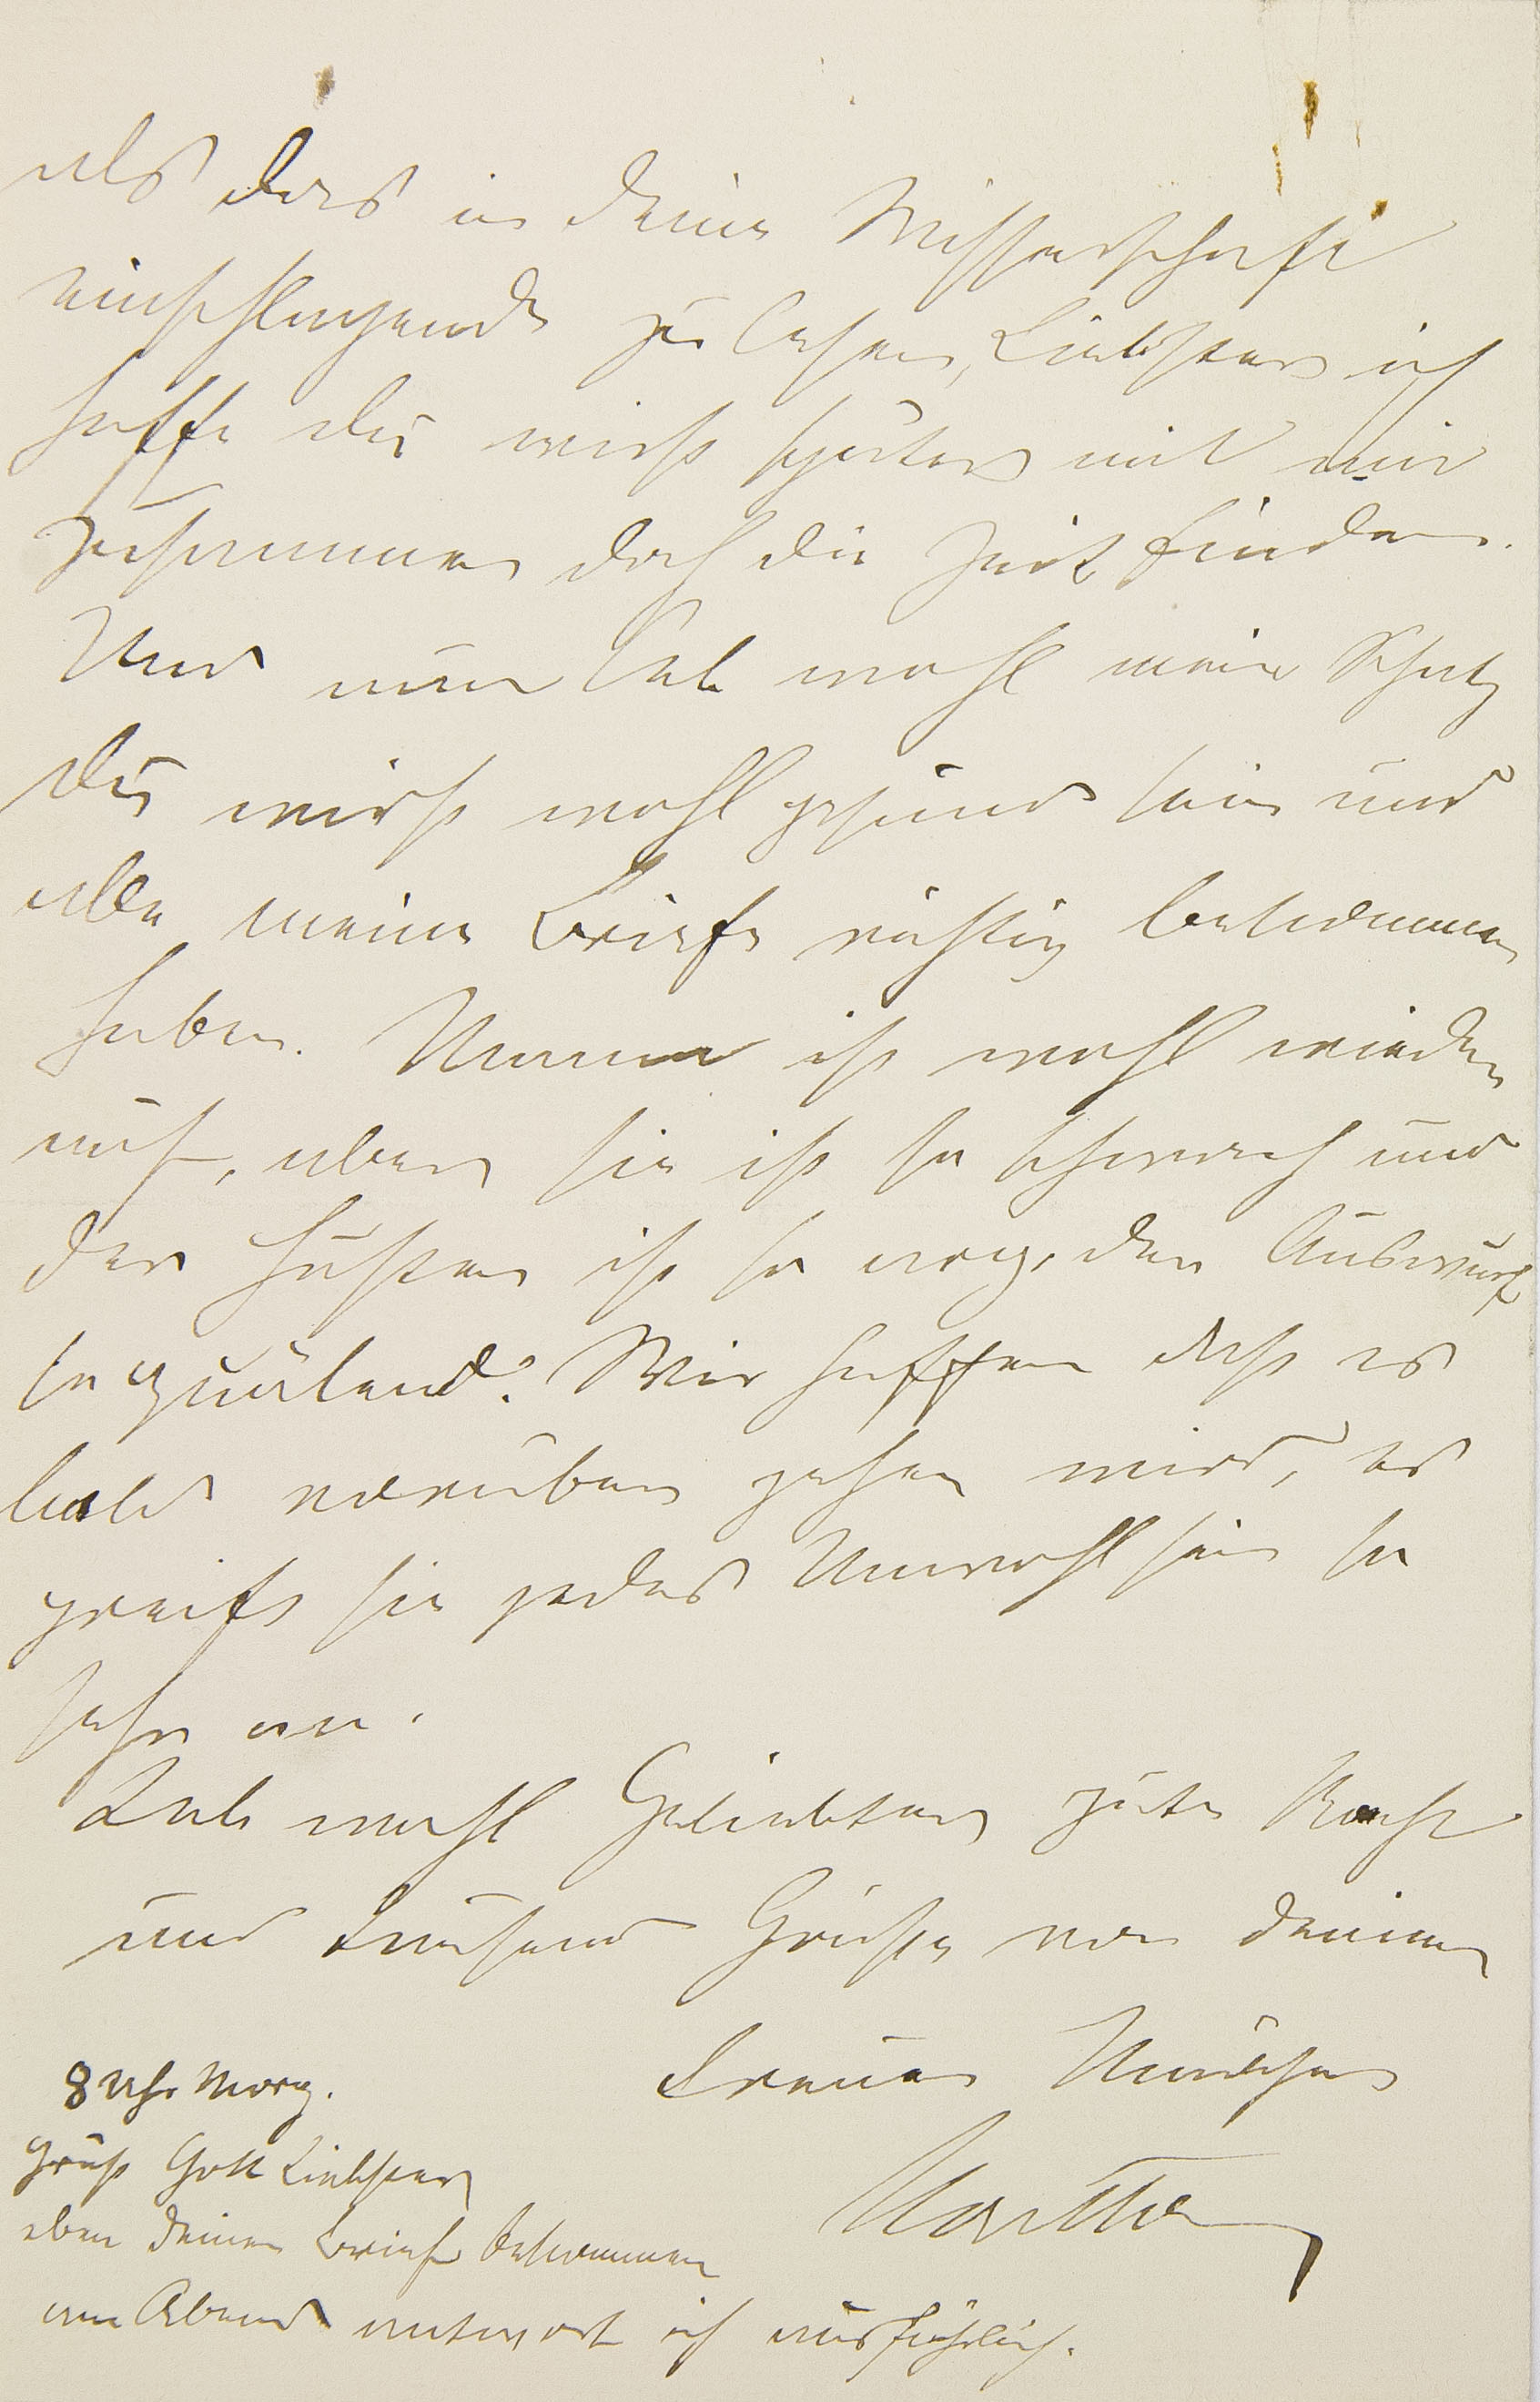 als das in deine Wissenschaft
einschlagende zu lesen, Liebster ich
hoffe du wirst später mit mir
zusammen doch die Zeit finden.
Und nun leb wohl mein Schatz
du wirst wohl gesund sein und
alle meine Briefe richtig bekommen
haben. Mama ist wohl wieder
auf, aber sie ist so schwach und
der Husten ist so arg, der Auswurf
so quälend. Wir hoffen daß es
bald vorüber gehen wird, es
greift sie jedes Unwohlsein so
sehr an.
Leb wohl Geliebter gute Nacht
und tausend Grüße von deinem
treuen
Martha
8 Uhr Morg.
Grüß Gott Liebster
eben deinen Brief bekommen
am Abend antwort ich ausführlich.